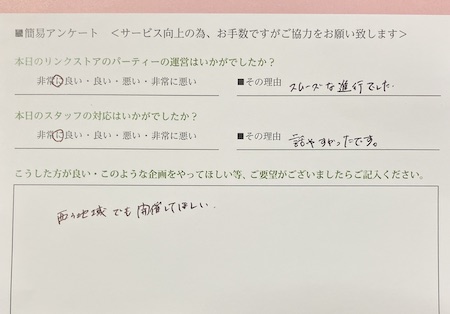 ■簡易アンケート <サービス向上の為、お手数ですがご協力をお願い致します>
本日のリンクストアのパーティーの運営はいかがでしたか?
非常に良い・良い・悪い・非常に悪い ■その理由 スムーズな進行でした.
本日のスタッフの対応はいかがでしたか?
非常に良い・良い・悪い・非常に悪い ■その理由 話やすかったです。
こうした方が良い・このような企画をやってほしい等、ご要望がございましたらご記入ください。
地域でも開催してほしい.